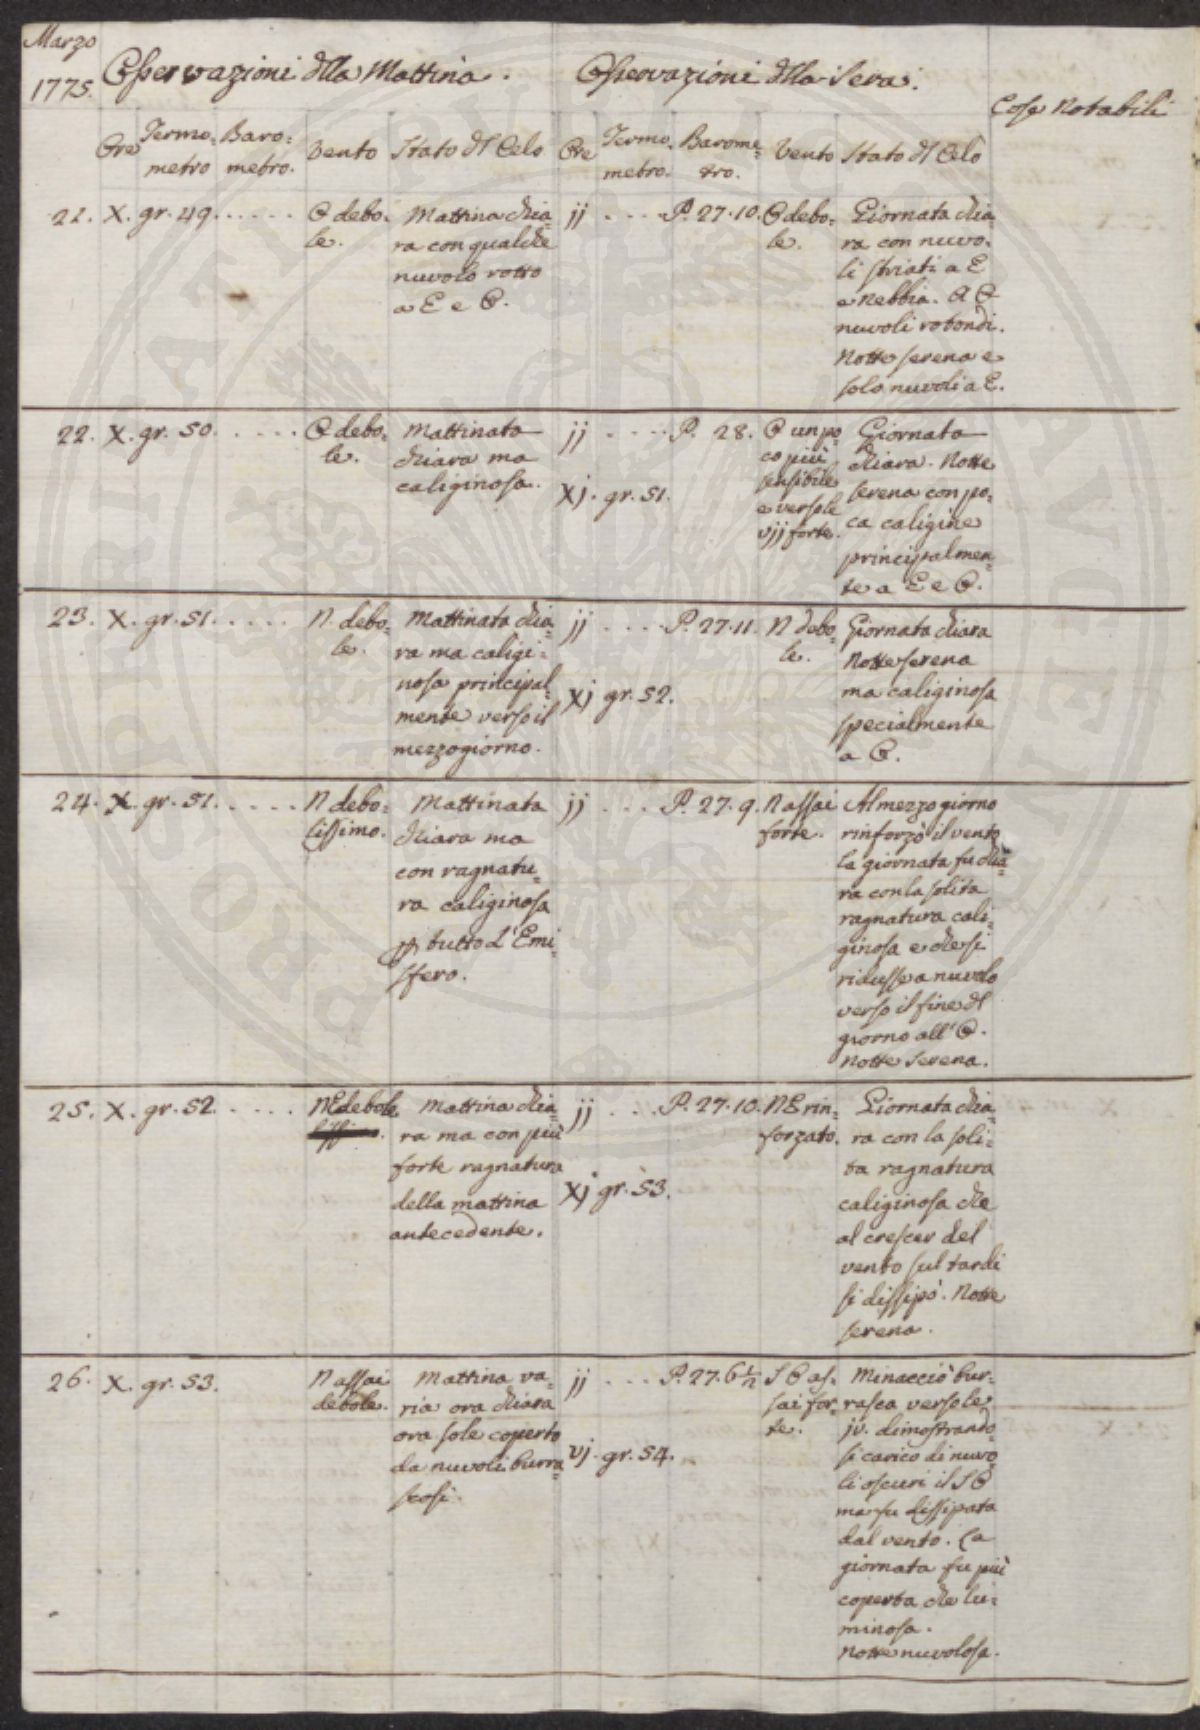 Marzo
1775.
Osservazioni dlla Mattina.
Osservazioni dlla Sera.
Cose Notabili
Ore
Termo:
metro
Baro:
metro.
Vento
Stato dl Celo
Ore
Termo:
metro.
Barome:
tro.
Vento
Stato dl Celo
21. X. gr. 49. . . . . .
O debo:
le.
Mattina chia:
ra con qualche
nuvolo rotto
a E e O.
jj . . . P. 27. 10.
O debo:
le.
Giornata chia:
ra con nuvo:
li striati a E
e nebbia. A O
nuvoli rotondi.
Notte serena e
solo nuvoli a E.
22. X. gr. 50. . . . . .
O debo:
le.
Mattinata
chiara ma
caliginosa.
jj . . . . P. 28.
xj. gr. 51.
O un po:
co più
sensibile
e verso le
vjj forte.
Giornata
chiara. Notte
serena con po:
ca caligine
principalmen:
te a E e O.
23. X. gr. 51. . . . . .
N. debo:
le.
Mattinata chia:
ra ma caligi:
nosa principal:
mente verso il
mezzogiorno.
jj . . . . P. 27. 11.
xj gr. 52.
N debo:
le.
Giornata chiara
Notte serena
ma caliginosa
specialmente
a O.
24. X. gr. 51. . . . . .
N debo:
lissimo.
Mattinata
chiara ma
con ragnatu:
ra caliginosa
p tutto l'Emi:
sfero.
jj . . . P. 27. 9.
N assai
forte.
Al mezzogiorno
rinforzò il vento
la giornata fu chia:
ra con la solita
ragnatura cali:
ginosa e che si
ridusse a nuvolo
verso il fine dl
giorno all' O.
Notte serena.
25. X. gr. 52. . . . . .
NE debole
Mattina chia:
ra ma con più
forte ragnatura
della mattina
antecedente.
jj . . . P. 27. 10.
xj gr. 53.
NE rin:
forzato.
Giornata chia:
ra con la soli:
ta ragnatura
caliginosa che
al crescer del
vento sul tardi
si dissipò. Notte
serena.
26. X. gr. 53.
N assai
debole.
Mattina va:
ria ora chiara
ora sole coperto
da nuvoli burra:
scosi.
jj . . . P. 27. 6 1/2
vj. gr. 54.
S O as:
sai for:
te.
Minacciò bur:
rasca verso le
jv. dimostrando:
si carico di nuvo:
li oscuri il S O
ma fu dissipata
dal vento. La
giornata fu più
coperta che lu:
minosa.
Notte nuvolosa.